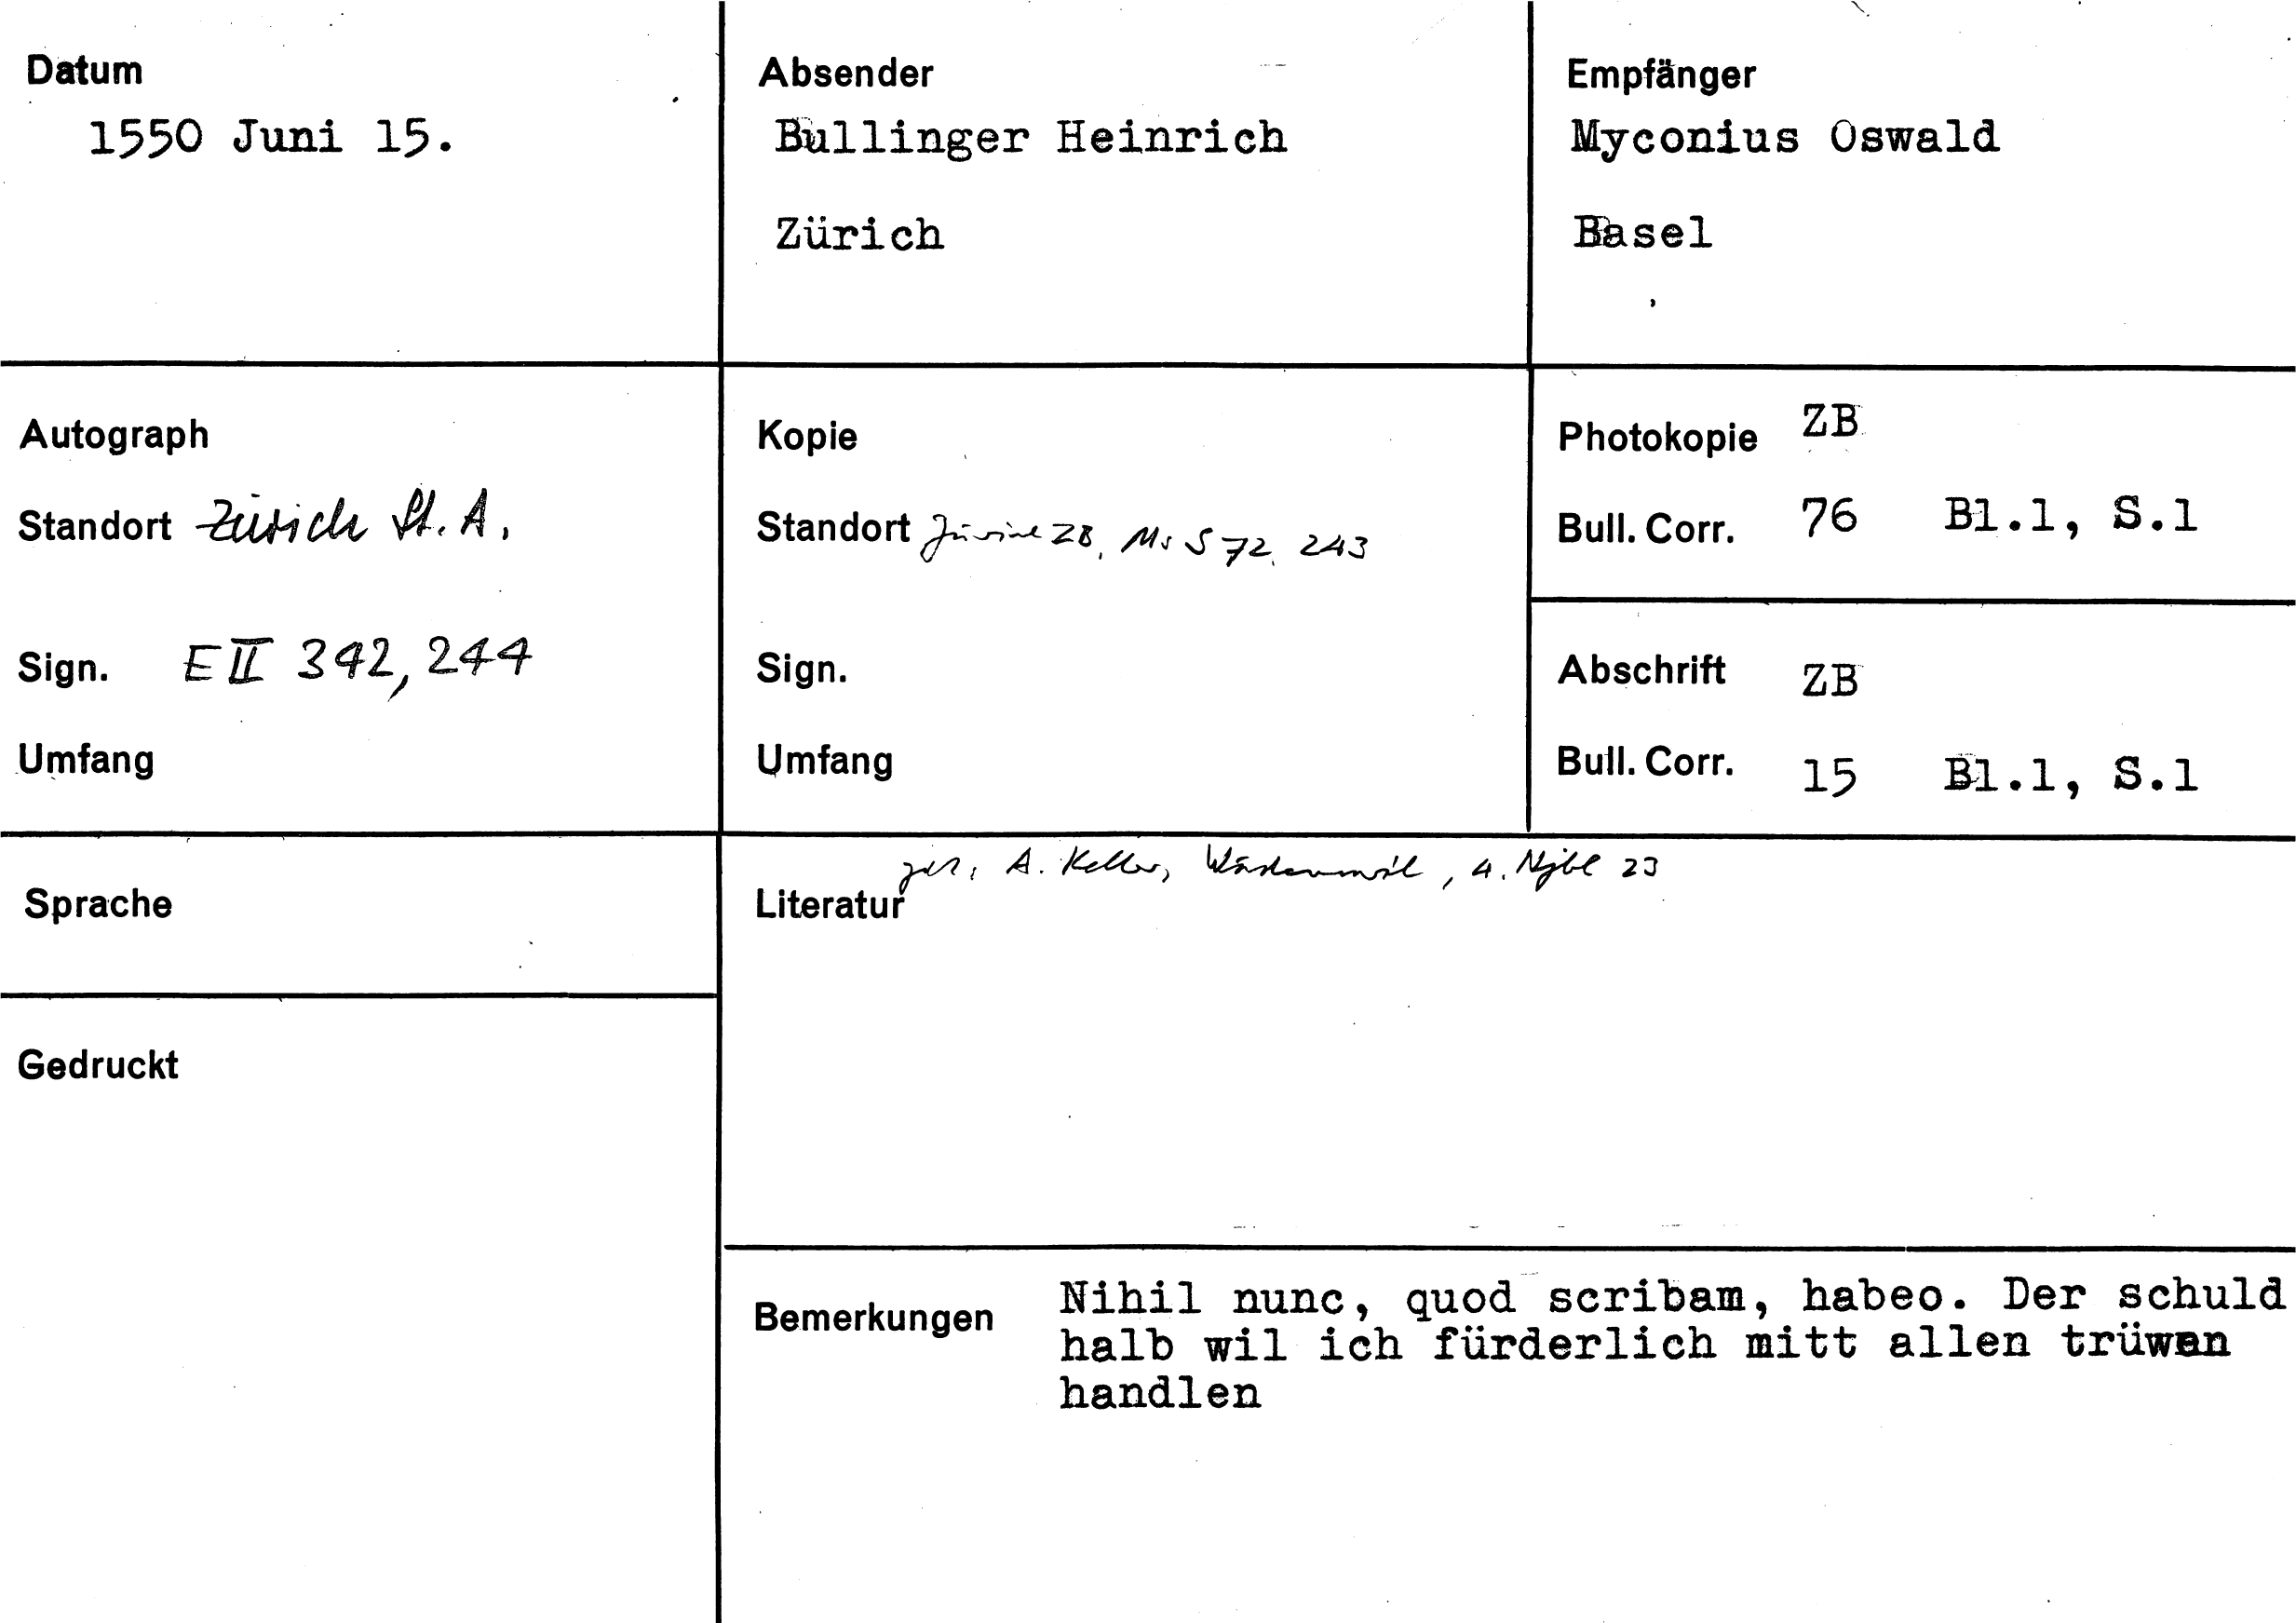 Datum
1550 Juni 15.
Absender
Bullinger Heinrich
Zürich
Empfänger
Myconius Oswald
Basel
Autograph
Standort Zürich St. A.
Sign. E II 342, 244
Umfang
Kopie
Standort Zürich ZB, Ms S 72, 243
Sign.
Umfang
Photokopie ZB
Bull. Corr. 76 Bl.1, S.1
Abschrift ZB
Bull. Corr. 15 Bl.1, S.1
Sprache
Gedruckt
A. Keller, Wädenswil, 4. Njbl 23
Literatur
Bemerkungen Nihil nunc, quod scribam, habeo. Der schuld
halb wil ich fürderlich mitt allen trüwen
handlen